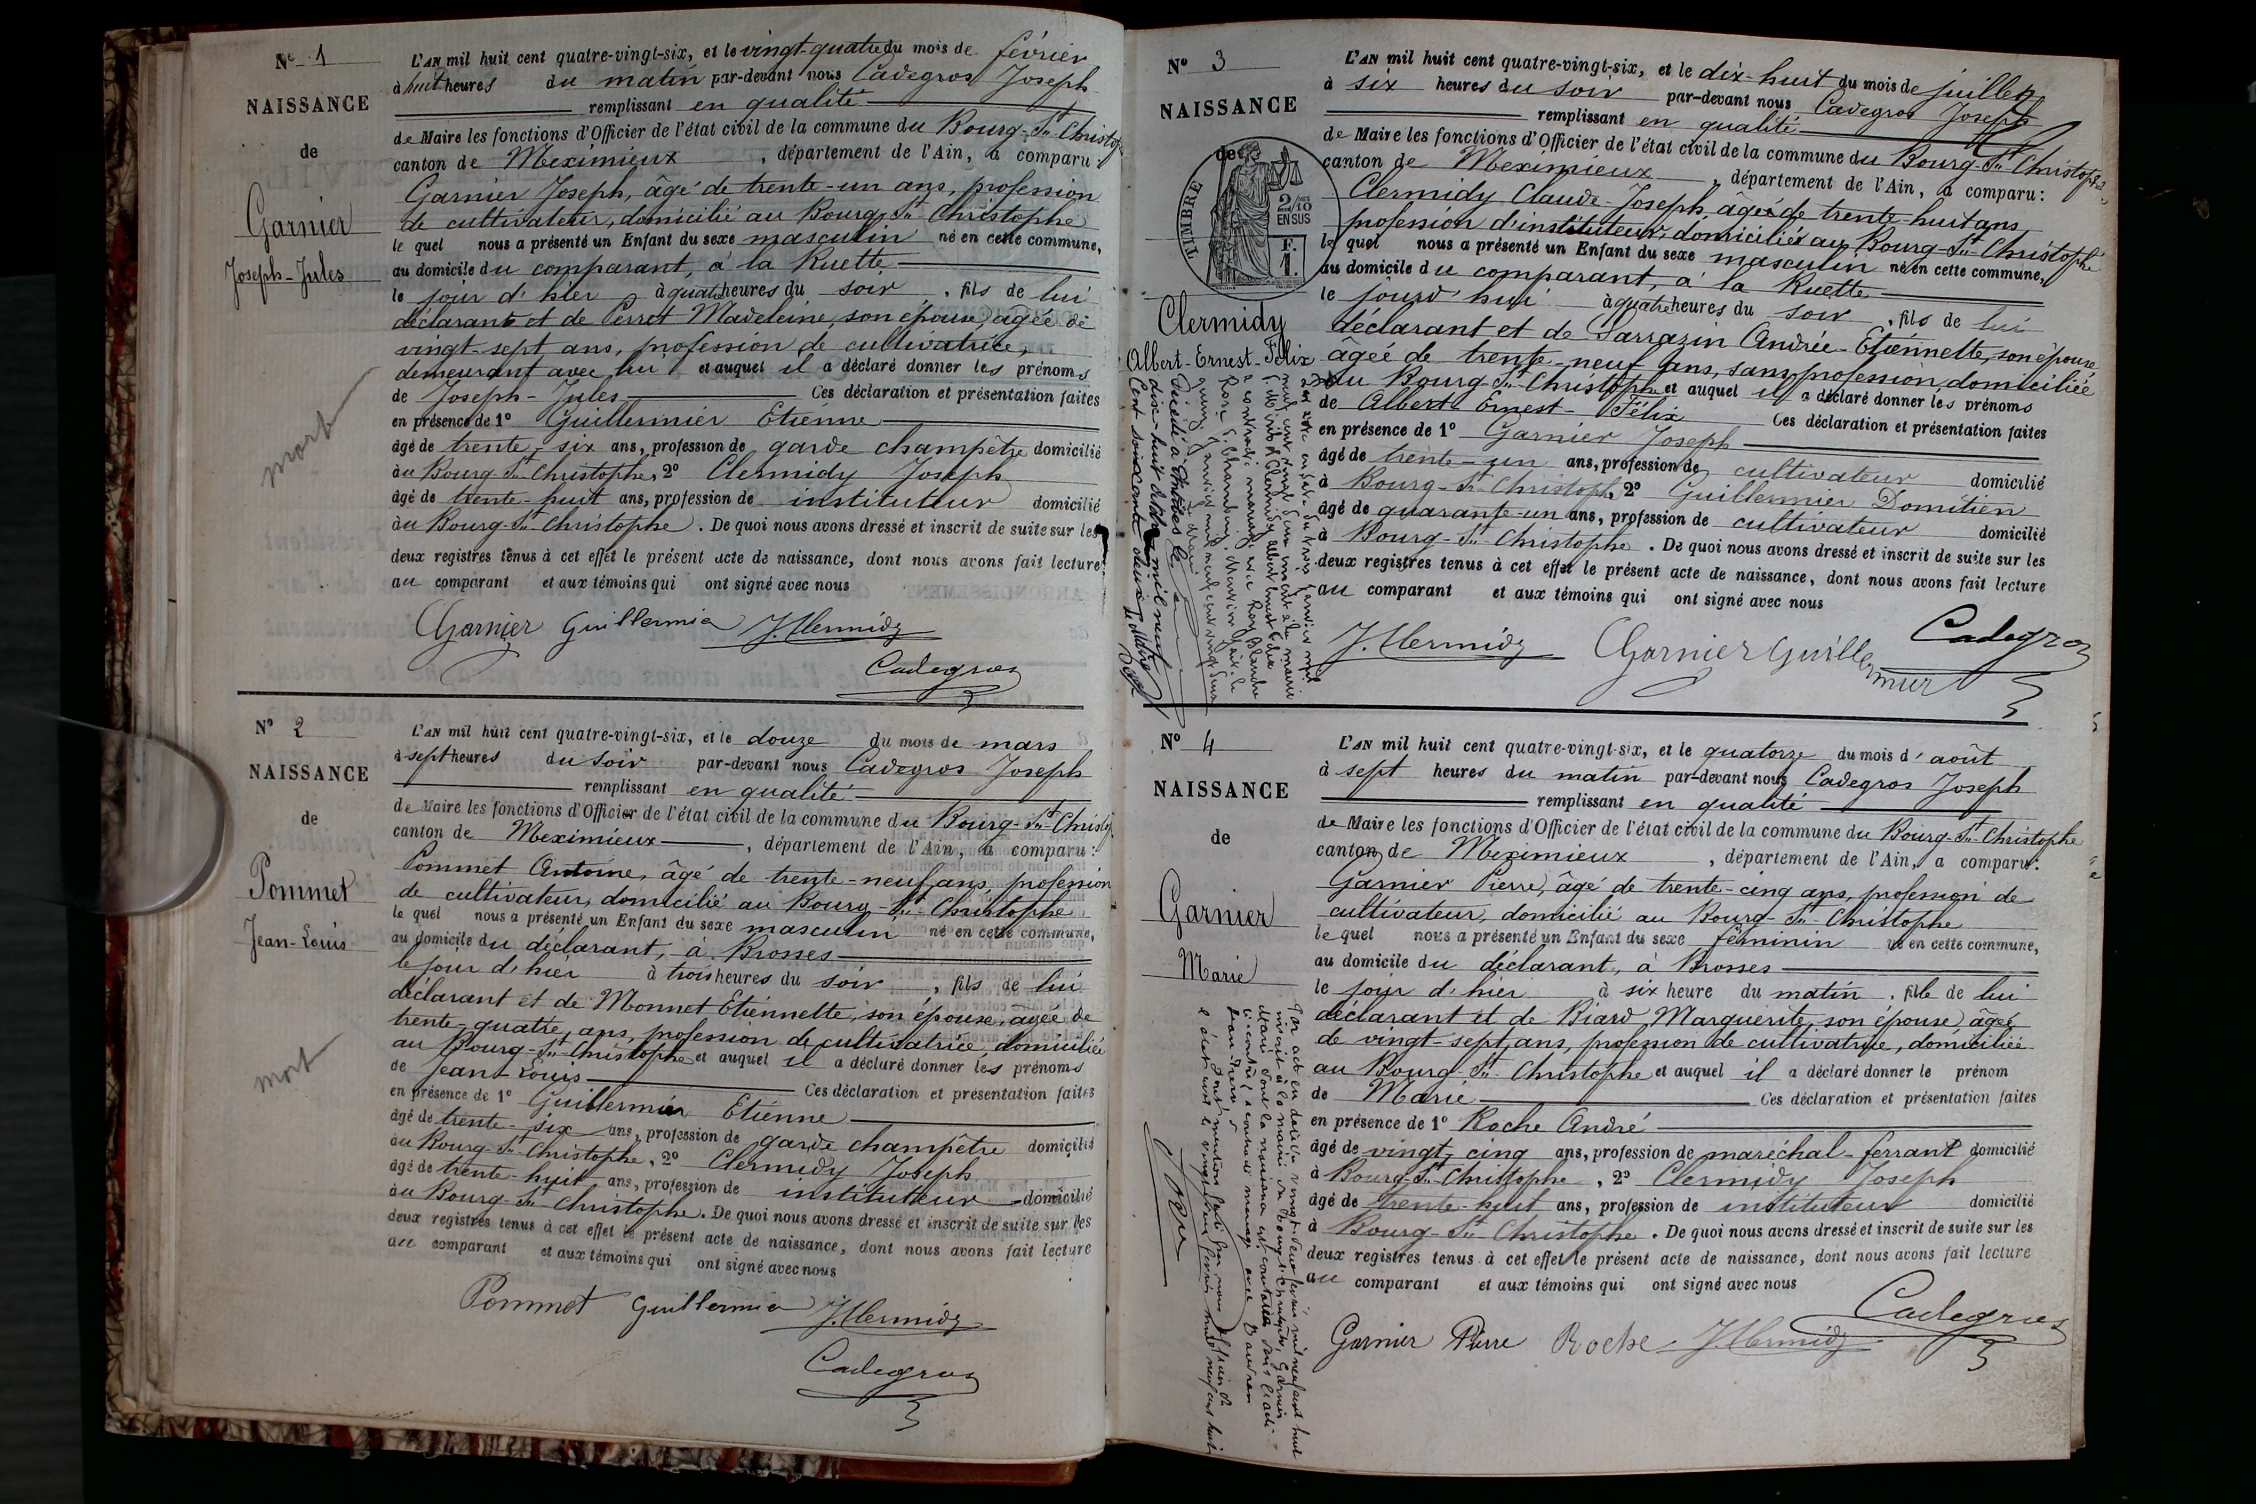 N° 1
NAISSANCE
de
Garnier
Joseph-Jules
mort
L'AN mil huit cent quatre-vingt-six, et le vingt-quatre du mois de février
à huit heures du matin par-devant nous Cadegros Joseph
remplissant en qualité
de Maire les fonctions d'Officier de l'état civil de la commune du Bourg-St-Christophe
canton de Meximieux, département de l'Ain, a comparu :
Garnier Joseph, âgé de trente-un ans, profession
de cultivateur, domicilié au Bourg-St-Christophe
le quel nous a présenté un Enfant du sexe masculin né en cette commune,
au domicile du comparant, à la Ruette
le jour d'hier à quatre heures du soir, fils de lui
déclarant et de Perret Madeleine, son épouse, agée de
vingt-sept ans, profession de cultivatrice,
demeurant avec lui et auquel il a déclaré donner les prénoms
de Joseph-Jules Ces déclaration et présentation faites
en présence de 1° Guillermier Etienne
âgé de trente-six ans, profession de garde champêtre domicilié
au Bourg-St-Christophe, 2° Clermidy Joseph
âgé de trente-huit ans, profession de instituteur domicilié
au Bourg-St-Christophe. De quoi nous avons dressé et inscrit de suite sur les
deux registres tenus à cet effet le présent acte de naissance, dont nous avons fait lecture
au comparant et aux témoins qui ont signé avec nous
Garnier Guillermier J. Clermidy
Cadegros
N° 2
NAISSANCE
de
Pommet
Jean-Louis
mort
L'AN mil huit cent quatre-vingt-six, et le douze du mois de mars
à sept heures du soir par-devant nous Cadegros Joseph
remplissant en qualité
de Maire les fonctions d'Officier de l'état civil de la commune du Bourg-St-Christop.
canton de Meximieux, département de l'Ain, a comparu :
Pommet Antoine, âgé de trente-neuf ans, profession
de cultivateur, domicilié au Bourg-St-Christophe
le quel nous a présenté un Enfant du sexe masculin né en cette commune,
au domicile du déclarant, à Brosses
le jour d'hier à trois heures du soir, fils de lui
déclarant et de Monnet Etiennette, son épouse, agée de
trente-quatre, ans, profession de cultivatrice, domiciliée
au Bourg-St-Christophe et auquel il a déclaré donner les prénoms
de Jean-Louis Ces déclaration et présentation faites
en présence de 1° Guillermier Etienne
âgé de trente-six ans, profession de garde champêtre domicilié
au Bourg-St-Christophe, 2° Clermidy Joseph
âgé de trente-huit ans, profession de instituteur domicilié
au Bourg-St-Christophe. De quoi nous avons dressé et inscrit de suite sur les
deux registres tenus à cet effet le présent acte de naissance, dont nous avons fait lecture
au comparant et aux témoins qui ont signé avec nous
Pommet Guillermier J. Clermidy
Cadegros
N° 3
NAISSANCE
de
TIMBRE
2/10
EN SUS
F.
1.
Clermidy
Albert-Ernest-Félix
Décédé à
dix-huit
mil neuf
cent soixante
le Maire
L'AN mil huit cent quatre-vingt-six, et le dix-huit du mois de juillet
à six heures du soir par-devant nous Cadegros Joseph
remplissant en qualité
de Maire les fonctions d'Officier de l'état civil de la commune du Bourg-St-Christophe
canton de Meximieux, département de l'Ain, a comparu :
Clermidy Claude-Joseph, âgé de trente-huit ans,
profession d'instituteur, domicilié au Bourg-St-Christophe
le quel nous a présenté un Enfant du sexe masculin né en cette commune,
au domicile du comparant, à la Ruette
le jourd'hui à quatre heures du soir, fils de lui
déclarant et de Sarrazin Andrée-Etiennette, son épouse
âgée de trente-neuf ans, sans profession, domiciliée
au Bourg-St-Christophe et auquel il a déclaré donner les prénoms
de Albert-Ernest-Félix Ces déclaration et présentation faites
en présence de 1° Garnier Joseph
âgé de trente-un ans, profession de cultivateur domicilié
à Bourg-St-Christoph., 2° Guillermier Domitien
âgé de quarante-un ans, profession de cultivateur domicilié
à Bourg-St-Christophe. De quoi nous avons dressé et inscrit de suite sur les
deux registres tenus à cet effet le présent acte de naissance, dont nous avons fait lecture
au comparant et aux témoins qui ont signé avec nous
J. Clermidy Garnier Guillermier Cadegros
N° 4
NAISSANCE
de
Garnier
Marie
L'AN mil huit cent quatre-vingt-six, et le quatorze du mois d'août
à sept heures du matin par-devant nous Cadegros Joseph
remplissant en qualité
de Maire les fonctions d'Officier de l'état civil de la commune du Bourg-St-Christophe
canton de Meximieux, département de l'Ain, a comparu :
Garnier Pierre, âgé de trente-cinq ans, profession de
cultivateur, domicilié au Bourg-St-Christophe
le quel nous a présenté un Enfant du sexe féminin né en cette commune,
au domicile du déclarant, à Brosses
le jour d'hier à six heure du matin, fille de lui
déclarant et de Biard Marguerite, son épouse, âgée
de vingt-sept, ans, profession de cultivatrice, domiciliée
au Bourg-St-Christophe et auquel il a déclaré donner le prénom
de Marie Ces déclaration et présentation faites
en présence de 1° Roche André
âgé de vingt-cinq ans, profession de maréchal-ferrant domicilié
à Bourg-St-Christophe, 2° Clermidy Joseph
âgé de trente-huit ans, profession de instituteur domicilié
à Bourg-St-Christophe. De quoi nous avons dressé et inscrit de suite sur les
deux registres tenus à cet effet le présent acte de naissance, dont nous avons fait lecture
au comparant et aux témoins qui ont signé avec nous
Garnier Pierre Roche J. Clermidy Cadegros